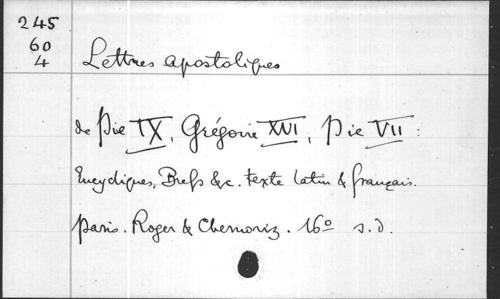 245
60
4
Lettres apostoliques
de Pie IX, Grégoire XVI, Pie VII :
Encycliques, Brefs &c. texte latin & français.
Paris. Roger & Chernoviz. 16º s.d.